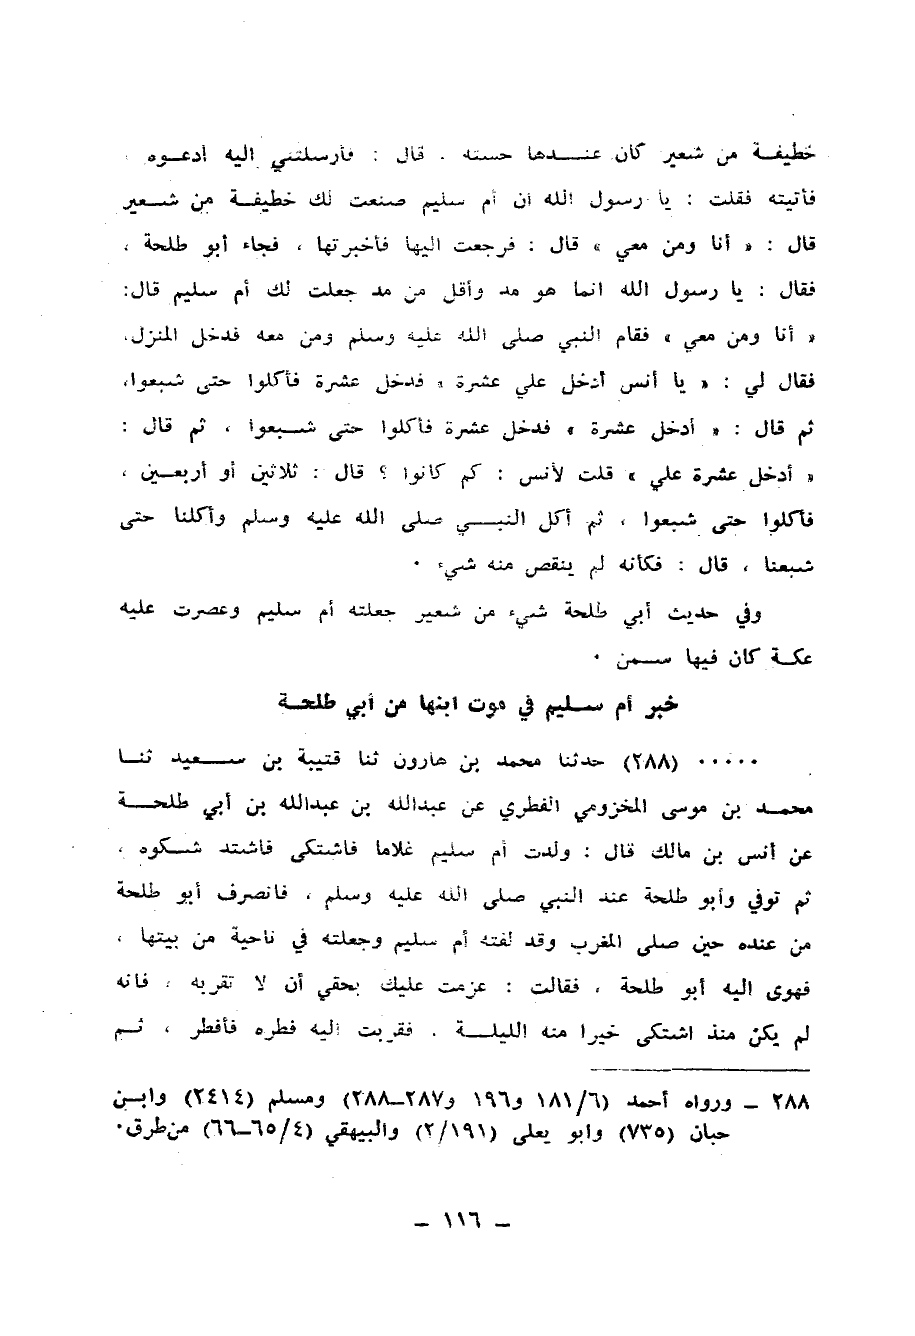 خطيفة من شعير كان عندها حسنه . قال : فأرسلتني اليه ادعوه
فأتيته فقلت : يا رسول الله ان أم سليم صنعت لك خطيفة من شعير
قال : « أنا ومن معي » قال : فرجعت اليها فأخبرتها ، فجاء أبو طلحة ،
فقال : يا رسول الله انما هو مد وأقل من مد جعلت لك أم سليم قال:
« أنا ومن معي » فقام النبي صلى الله عليه وسلم ومن معه فدخل المنزل،
فقال لي : « يا أنس أدخل علي عشرة » فدخل عشرة فأكلوا حتى شبعوا،
ثم قال : « أدخل عشرة » فدخل عشرة فأكلوا حتى شبعوا ، ثم قال :
« أدخل عشرة علي » قلت لأنس : كم كانوا ؟ قال : ثلاثين أو أربعين ،
فأكلوا حتى شبعوا ، ثم أكل النبي صلى الله عليه وسلم وأكلنا حتى
شبعنا ، قال : فكأنه لم ينقص منه شيء .
وفي حديث أبي طلحة شيء من شعير جعلته أم سليم وعصرت عليه
عكة كان فيها سمن .
خبر أم سليم في موت ابنها من أبي طلحة
..... (٢٨٨) حدثنا محمد بن هارون ثنا قتيبة بن سعيد ثنا
محمد بن موسى المخزومي الفطري عن عبدالله بن عبدالله بن أبي طلحة
عن أنس بن مالك قال : ولدت أم سليم غلاما فاشتكى فاشتد شكوه ،
ثم توفي وأبو طلحة عند النبي صلى الله عليه وسلم ، فانصرف أبو طلحة
من عنده حين صلى المغرب وقد لفته أم سليم وجعلته في ناحية من بيتها ،
فهوى اليه أبو طلحة ، فقالت : عزمت عليك بحقي أن لا تقربه ، فانه
لم يكن منذ اشتكى خيرا منه الليلة . فقربت اليه فطره فأفطر ، ثم
٢٨٨ ــ ورواه أحمد (١٨١/٦ و١٩٦ و٢٨٧ــ٢٨٨) ومسلم (٢٤١٤) وابن
حبان (٧٣٥) وابو يعلى (٢/١٩١) والبيهقي (٦٥/٤ــ٦٦) من طرق.
ــ ١١٦ ــ